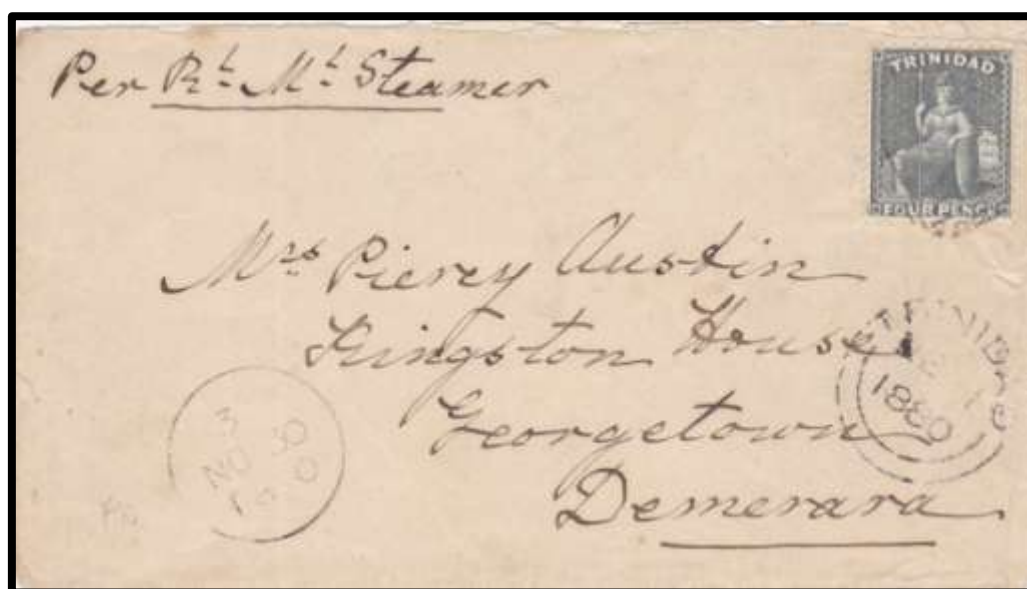 Per Rl. Ml. Steamer
TRINIDAD
FOUR PENCE
Mrs Piercy Austin
Kingston House
Georgetown
Demerara
TRINIDAD
1880
3
NO 30